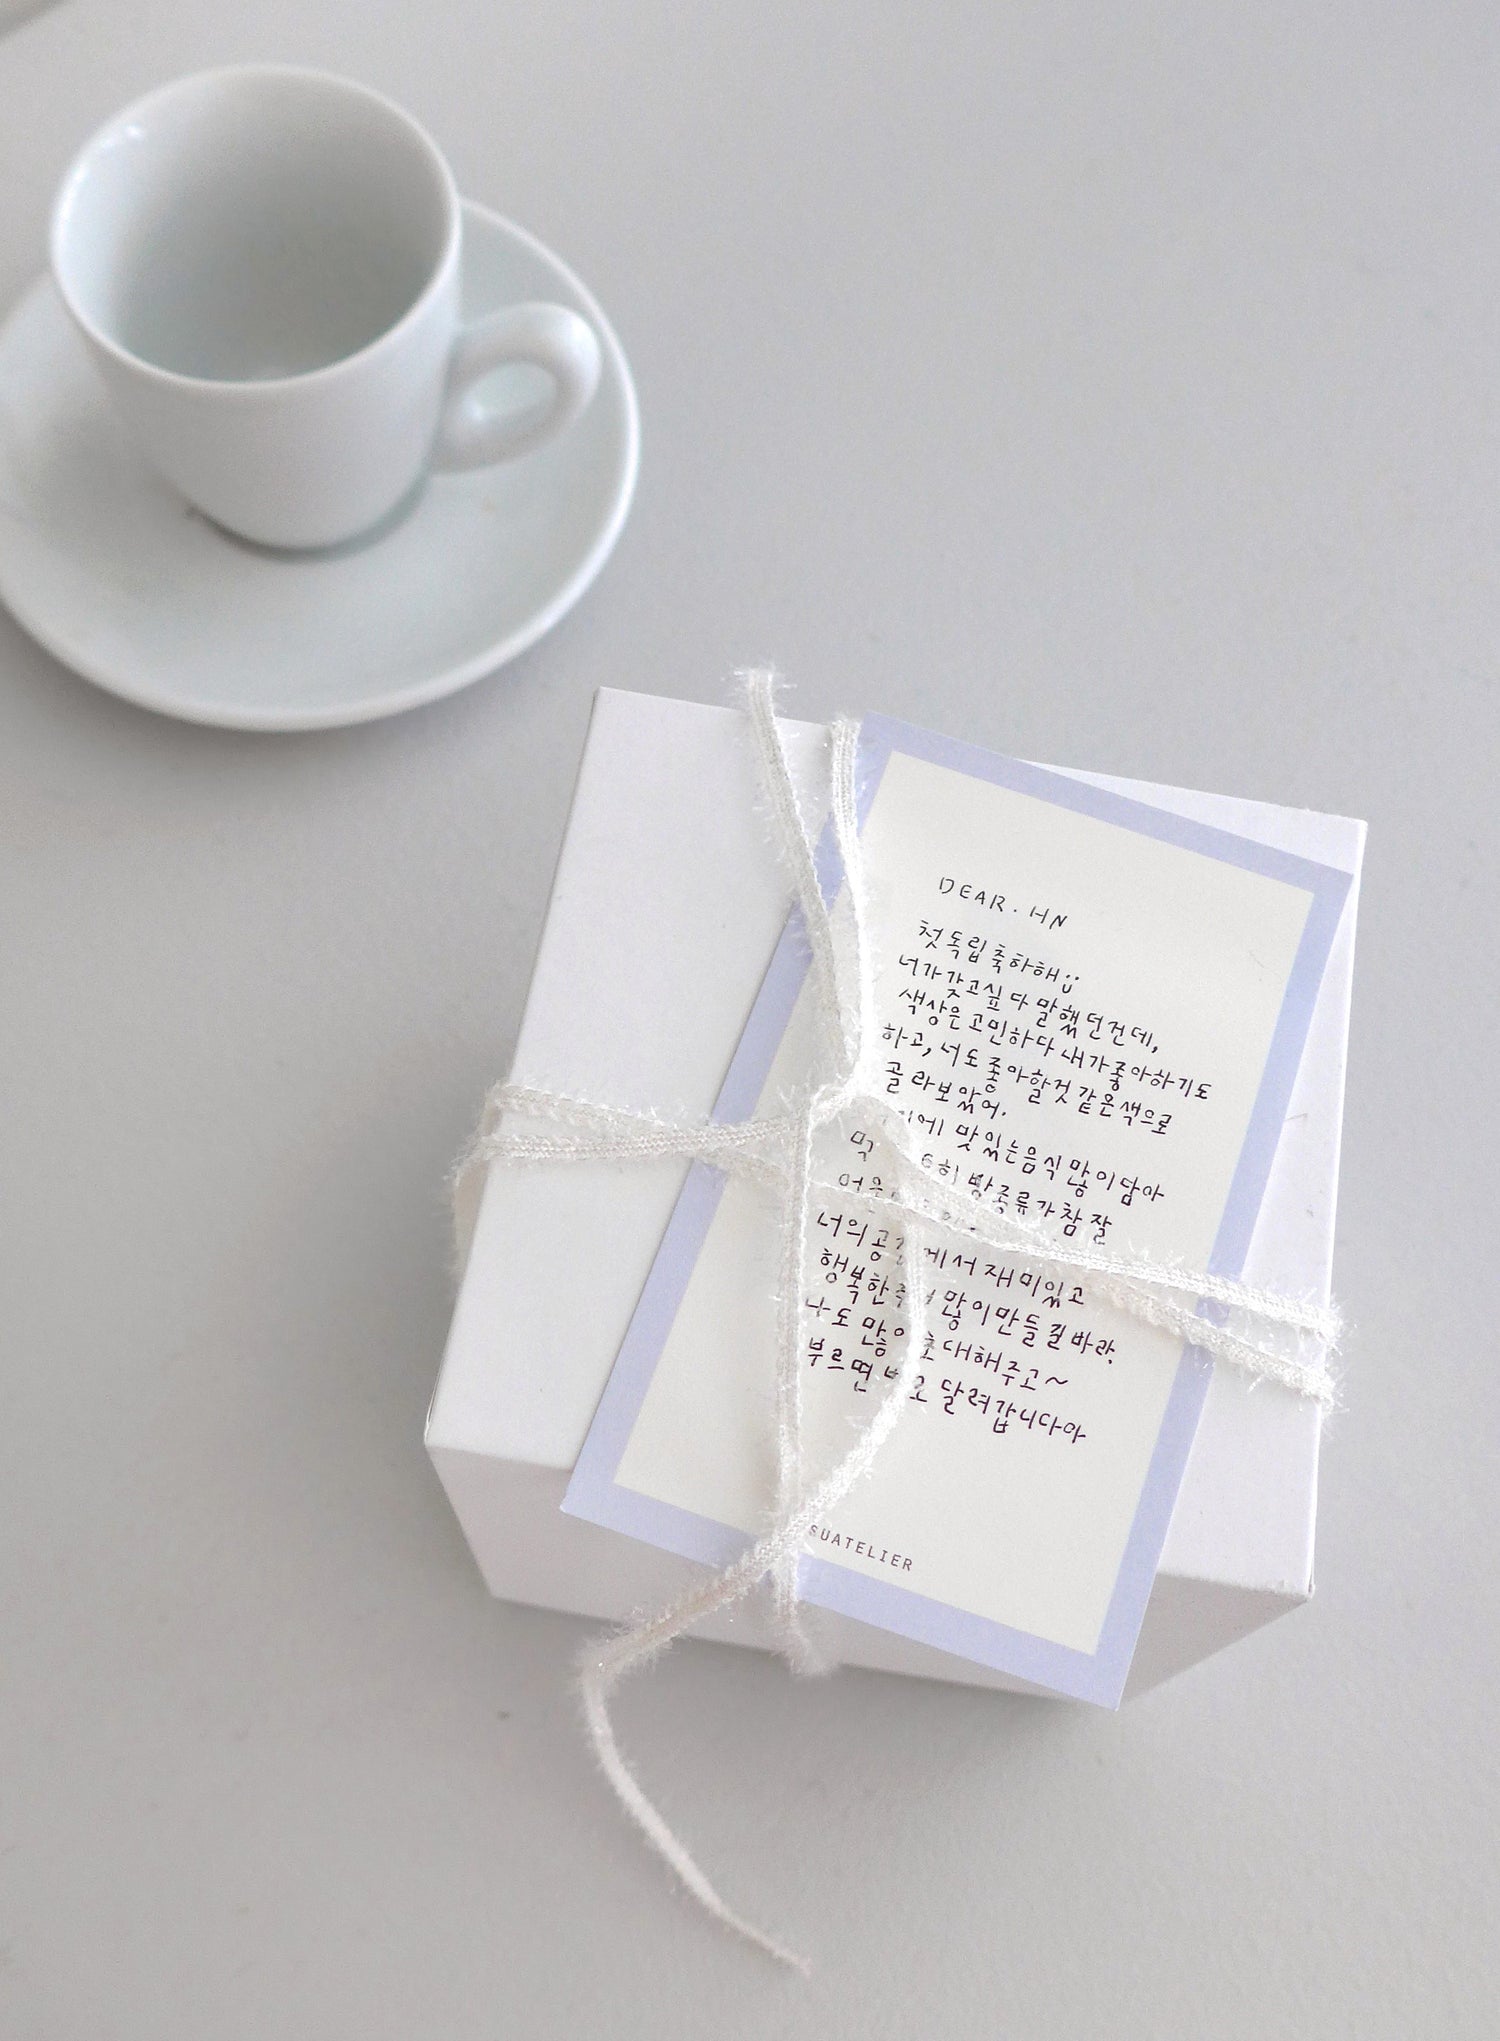 DEAR. HN
첫 독립 축하해 :)
너가 갖고싶다 말했던건데,
색상은 고민하다 내가 좋아하기도
하고, 너도 좋아할것 같은색으로
골라보았어.
맛있는음식 많이담아
빵종류가 참 잘
너의 재미있고
행복한 많이만들길바라.
나도 초대해주고~
부르면 달려갑니다아
SUATELIER